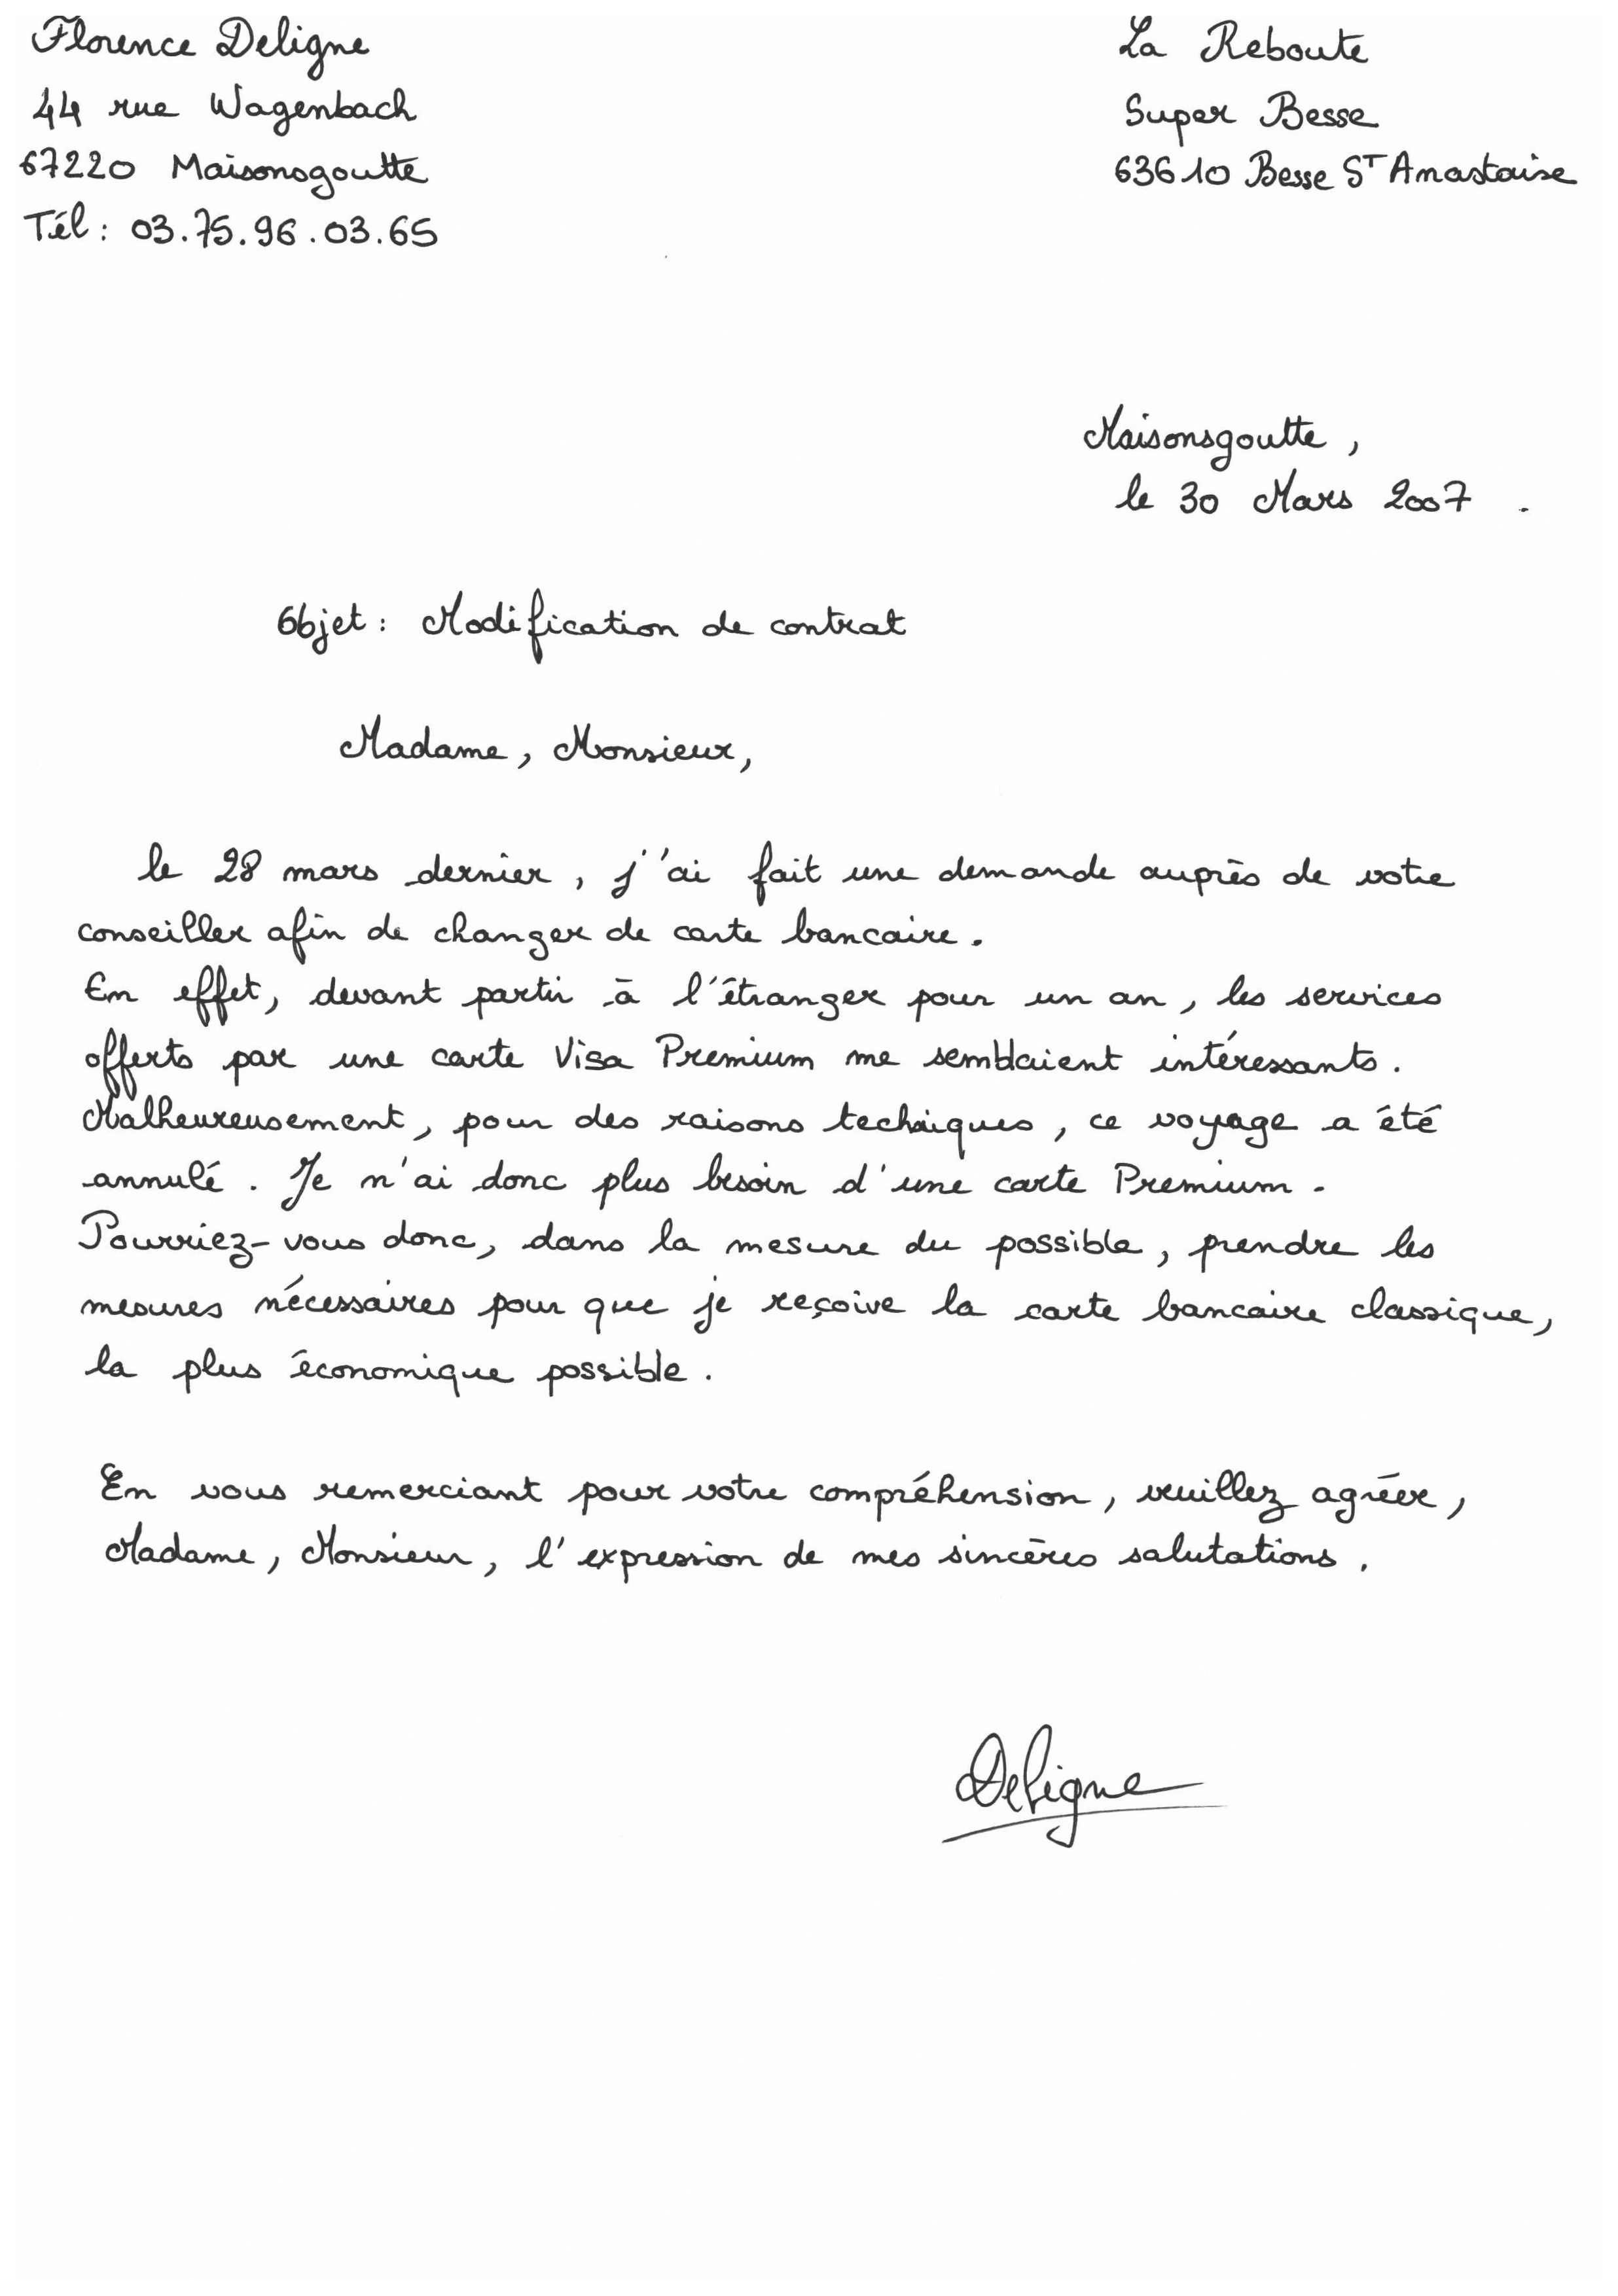 Florence Deligne
44 rue Wagenbach
67220 Maisonsgoutte
Tél : 03.75.96.03.65
La Reboute
Super Besse
63610 Besse St Anastaise
Maisonsgoutte,
le 30 Mars 2007.
Objet : Modification de contrat
Madame, Monsieur,
le 28 mars dernier, j'ai fait une demande auprès de votre
conseiller afin de changer de carte bancaire.
En effet, devant partir à l'étranger pour un an, les services
offerts par une carte Visa Premium me semblaient intéressants.
Malheureusement, pour des raisons techniques, ce voyage a été
annulé. Je n'ai donc plus besoin d'une carte Premium.
Pourriez-vous donc, dans la mesure du possible, prendre les
mesures nécessaires pour que je reçoive la carte bancaire classique,
la plus économique possible.
En vous remerciant pour votre compréhension, veuillez agréer,
Madame, Monsieur, l'expression de mes sincères salutations.
Deligne